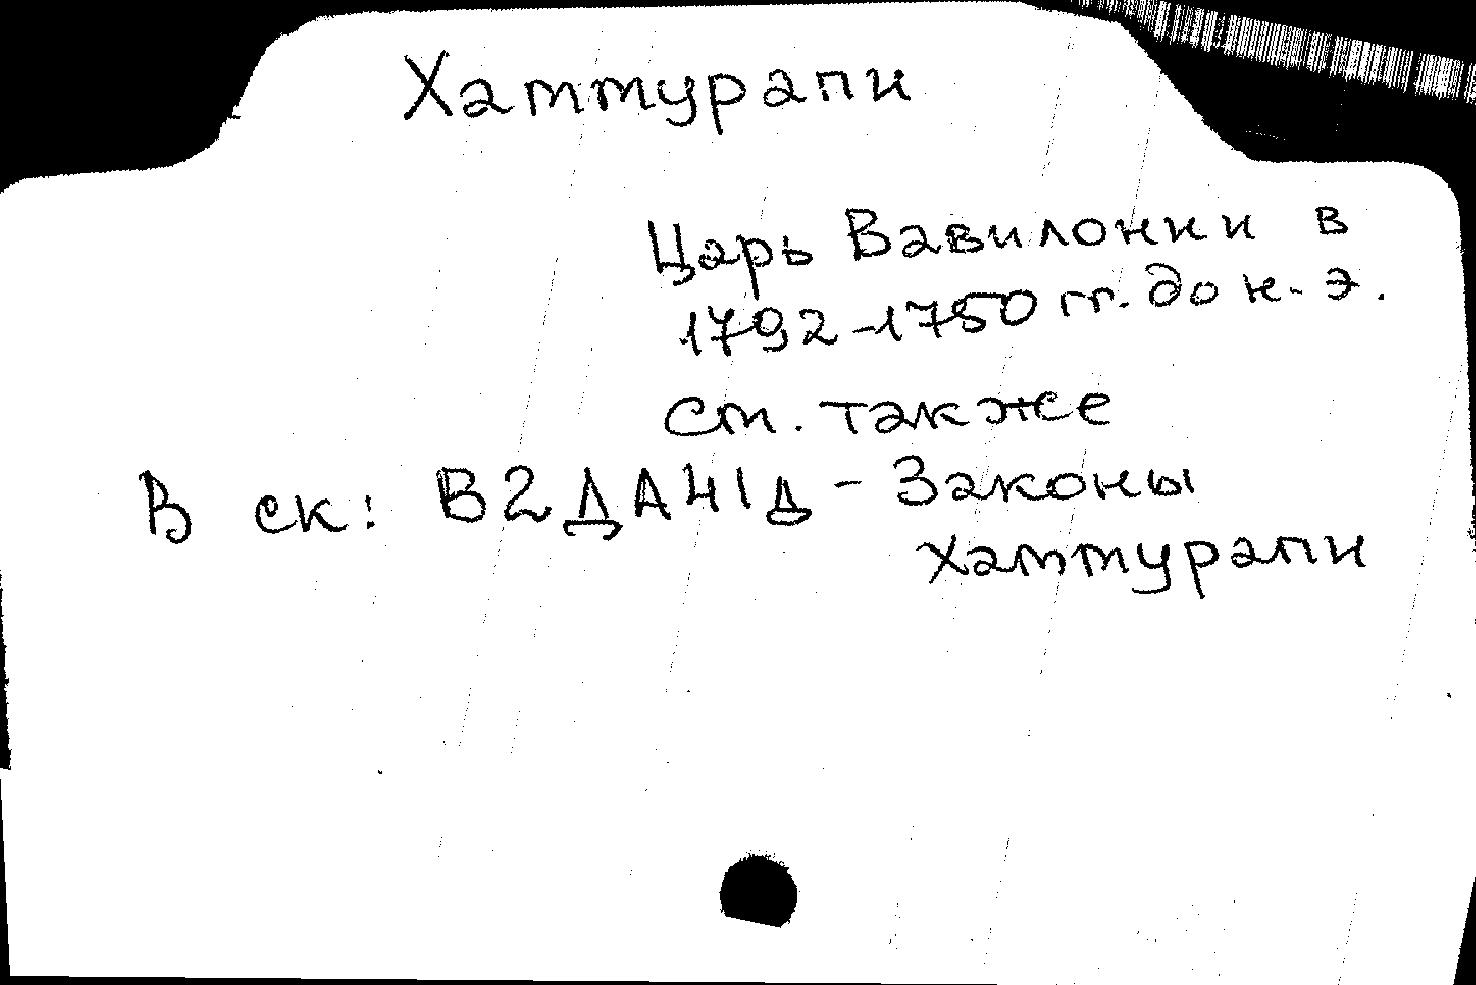 Хаммурапи
Царь Вавилонии в
1792-1750 гг. до н. э.
См. также
В ск: В2ДА41Д - Законы
Хаммурапи